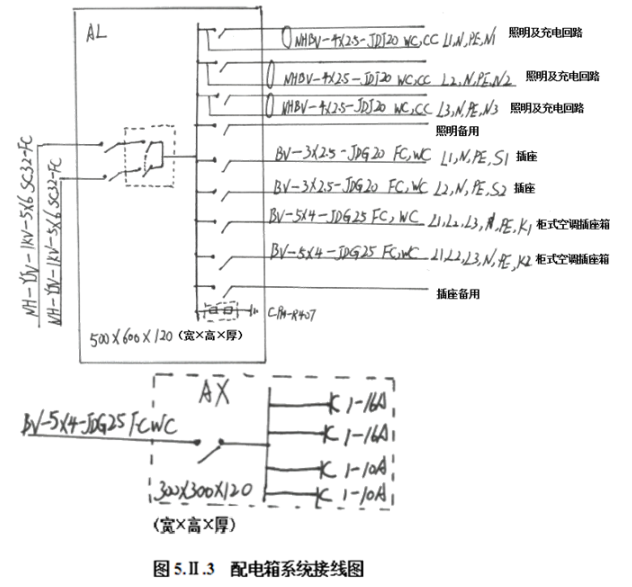 AL
NHBV-4X2.5-JDJ20 WC,CC L1,N,PE,N1 照明及充电回路
NHBV-4X2.5-JDJ20 WC,CC L2,N,PE,N2 照明及充电回路
NHBV-4X2.5-JDJ20 WC,CC L3,N,PE,N3 照明及充电回路
照明备用
BV-3X2.5-JDG20 FC,WC L1,N,PE,S1 插座
BV-3X2.5-JDG20 FC,WC L2,N,PE,S2 插座
BV-5X4-JDG25 FC,WC L1,L2,L3,N,PE,K1 柜式空调插座箱
BV-5X4-JDG25 FC,WC L1,L2,L3,N,PE,K2 柜式空调插座箱
插座备用
NH-YJV-1KV-5X6 SC32-FC
NH-YJV-1KV-5X6 SC32-FC
500X600X120 (宽×高×厚)
AX
BV-5X4-JDG25 FC WC
K 1-16A
K 1-16A
K 1-10A
K 1-10A
300X300X120
(宽×高×厚)
图 5.Ⅱ.3 配电箱系统接线图